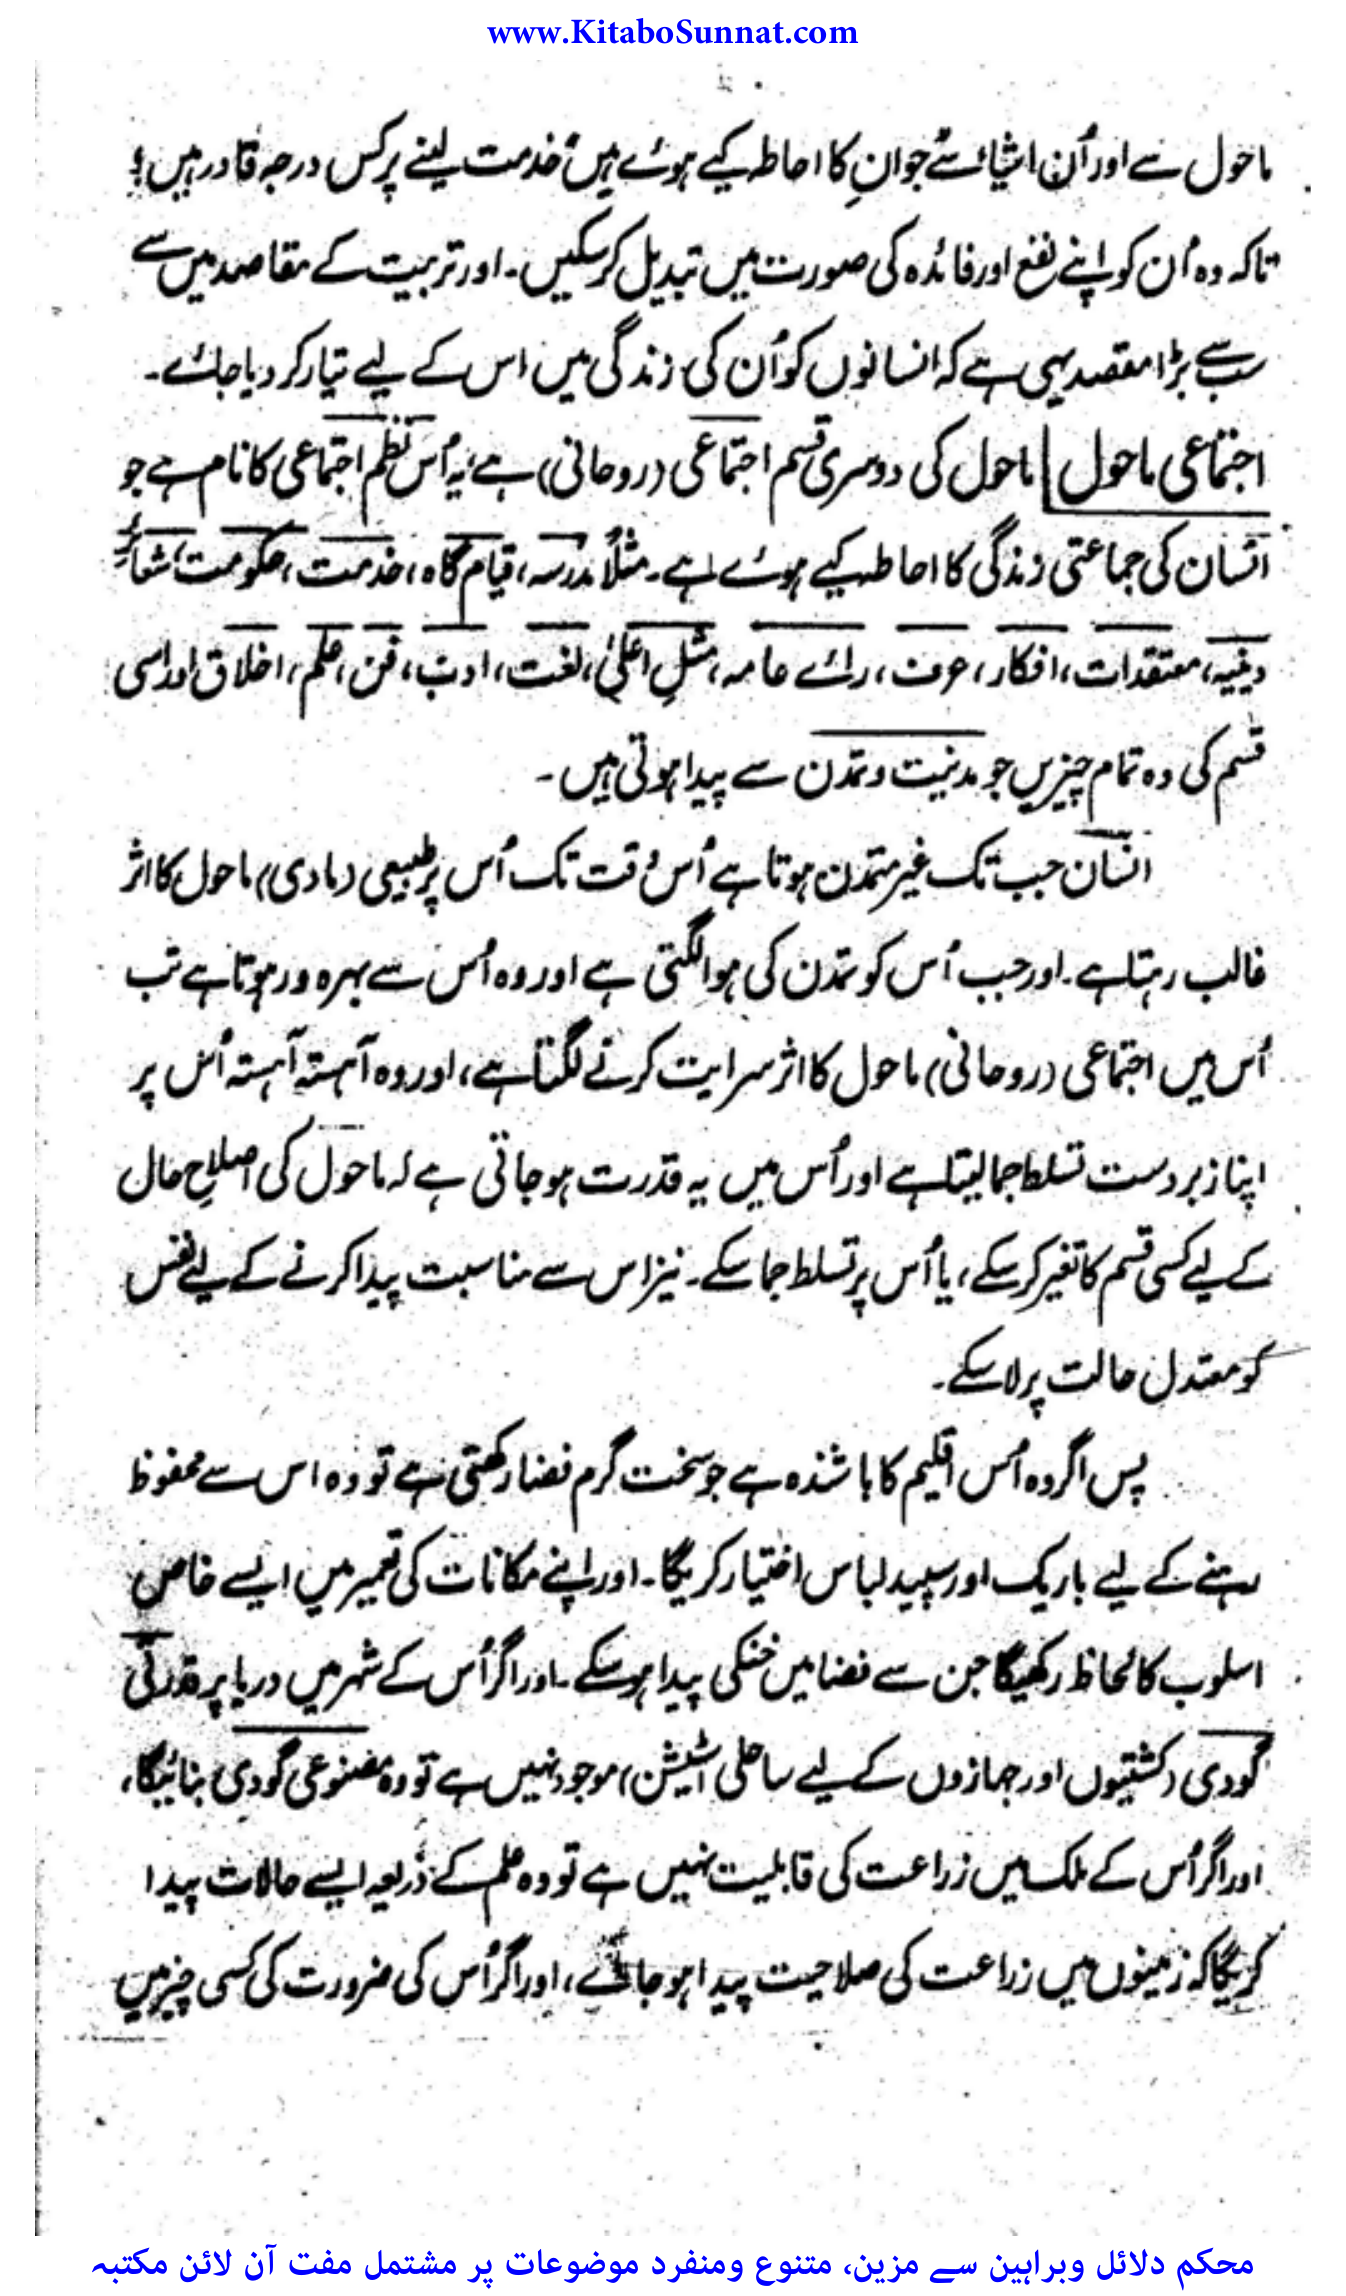 www.KitaboSunnat.com
ماحول سے اور اُن اشیاء سے جو ان کا احاطہ کیے ہوئے ہیں خدمت لینے پر کس درجہ قادر ہیں؛
تاکہ وہ اُن کو اپنے نفع اور فائدہ کی صورت میں تبدیل کر سکیں۔ اور تربیت کے مقاصد میں سے
سب سے بڑا مقصد یہی ہے کہ انسانوں کو اُن کی زندگی میں اس کے لیے تیار کر دیا جائے۔
اجتماعی ماحول | ماحول کی دوسری قسم اجتماعی (روحانی) ہے یہ اُس نظم اجتماعی کا نام ہے جو
انسان کی جماعتی زندگی کا احاطہ کیے ہوئے ہے۔ مثلاً مدرسہ، قیام گاہ، خدمت، حکومت، شعائر
دینیہ، معتقدات، افکار، عرف، رائے عامہ، مثلِ اعلیٰ، لغت، ادب، فن، علم، اخلاق اور اسی
قسم کی وہ تمام چیزیں جو مدنیت و تمدن سے پیدا ہوتی ہیں۔
انسان جب تک غیر متمدن ہوتا ہے اُس وقت تک اُس پر طبیعی (مادی) ماحول کا اثر
غالب رہتا ہے۔ اور جب اُس کو تمدن کی ہوا لگتی ہے اور وہ اُس سے بہرہ ور ہوتا ہے تب
اُس میں اجتماعی (روحانی) ماحول کا اثر سرایت کرنے لگتا ہے، اور وہ آہستہ آہستہ اُس پر
اپنا زبردست تسلط جما لیتا ہے اور اُس میں یہ قدرت ہو جاتی ہے کہ ماحول کی اصلاحِ حال
کے لیے کسی قسم کا تغیر کر سکے، یا اُس پر تسلط جما سکے۔ نیز اس سے مناسبت پیدا کرنے کے لیے نفس
کو معتدل حالت پر لا سکے۔
پس اگر وہ اُس اقلیم کا باشندہ ہے جو سخت گرم فضا رکھتی ہے تو وہ اس سے محفوظ
رہنے کے لیے باریک اور سپید لباس اختیار کریگا۔ اور اپنے مکانات کی تعمیر میں ایسے خاص
اسلوب کا لحاظ رکھیگا جن سے فضا میں خنکی پیدا ہو سکے۔ اور اگر اُس کے شہر میں دریا پر قدرتی
گودی (کشتیوں اور جہازوں کے لیے ساحلی اسٹیشن) موجود نہیں ہے تو وہ مصنوعی گودی بنائیگا،
اور اگر اُس کے ملک میں زراعت کی قابلیت نہیں ہے تو وہ علم کے ذریعہ ایسے حالات پیدا
کریگا کہ زمینوں میں زراعت کی صلاحیت پیدا ہو جائے، اور اگر اُس کی ضرورت کی کسی چیز میں
محکم دلائل وبراہین سے مزین، متنوع ومنفرد موضوعات پر مشتمل مفت آن لائن مکتبہ